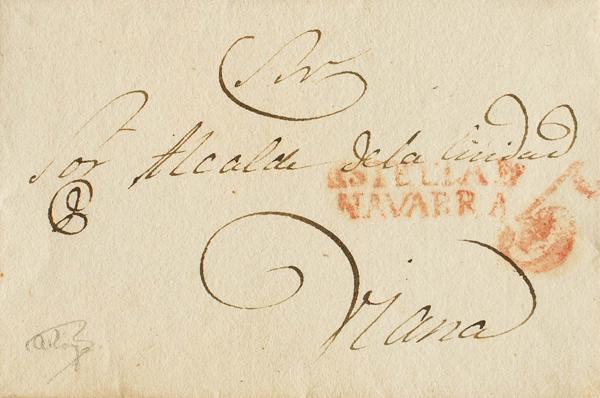 Sor
Sor Alcalde dela Ciudad
ESTELLA D
NAVARRA
5
Viana